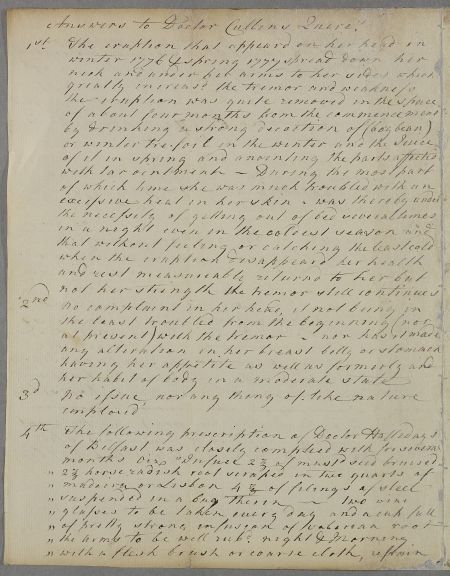 Answers to Doctor Cullens Quere's
1st The eruption that appeared on her head in
winter 1776 & spring 1777 spread down her
neck and under her arms to her sides which
greatly increas'd the tremor and weakness
the eruption was quite removed in the space
of about four months from the commencement
by drinking a strong decoction of (bogbean)
or winter trefoil in the winter and the Juice
of it in spring and anointing the parts affected
with tar ointment – During the most part
of which time she was much troubled with an
excessive heat in her skin & was thereby under
the necessity of getting out of bed several times
in a night even in the coldest season and
that without feeling or catching the least cold
when the eruption disappeared her health
and rest measurably returnd to her but
not her strength the tremor still continues
2nd No complaint in her head, it not being in
the least troubled from the beginning (nor
at present) with the tremor – nor has it made
any alteration in her breast belly or stomach
having her appetite as well as formerly and
her habit of body in a moderate state
3d No issue, nor any thing of like nature
employed
4th The following prescription of Doctor Hallidays
of Belfast was closely complied with for several
months Viz. "Infuse 2 ℥ of mustard seed bruised
" 2 ℥ horse radish root scraped in two quarts of
" madeira or Lisbon 4 ℥ of filings of steel
" suspended in a bag therein – two wine
" glasses to be taken every day and a cup full
" of pretty strong infusion of Valerian root
" the arms to be well rubd night & Morning
" with a flesh brush or coarse cloth,